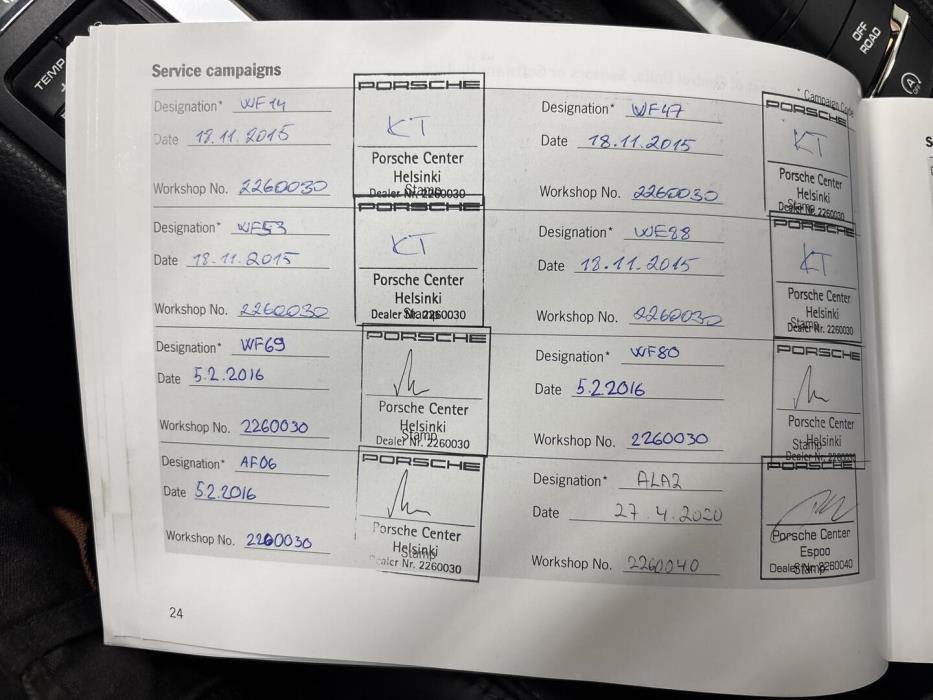 TEMP
OFF
ROAD
Service campaigns
* Campaign Code
Designation* WF14
Date 18.11.2015
Workshop No. 2260030
PORSCHE
KT
Porsche Center
Helsinki
Stamp
Dealer Nr. 2260030
Designation* WF47
Date 18.11.2015
Workshop No. 2260030
PORSCHE
KT
Porsche Center
Helsinki
Stamp
Dealer Nr. 2260030
Designation* WF53
Date 18.11.2015
Workshop No. 2260030
PORSCHE
KT
Porsche Center
Helsinki
Stamp
Dealer Nr. 2260030
Designation* WE88
Date 18.11.2015
Workshop No. 2260030
PORSCHE
KT
Porsche Center
Helsinki
Stamp
Dealer Nr. 2260030
Designation* WF69
Date 5.2.2016
Workshop No. 2260030
PORSCHE
Porsche Center
Helsinki
Stamp
Dealer Nr. 2260030
Designation* WF80
Date 5.2.2016
Workshop No. 2260030
PORSCHE
Porsche Center
Helsinki
Stamp
Dealer Nr. 2260030
Designation* AF06
Date 5.2.2016
Workshop No. 2260030
PORSCHE
Porsche Center
Helsinki
Stamp
Dealer Nr. 2260030
Designation* ALA2
Date 27.4.2020
Workshop No. 2260040
PORSCHE
Porsche Center
Espoo
Stamp
Dealer Nr. 2260040
24